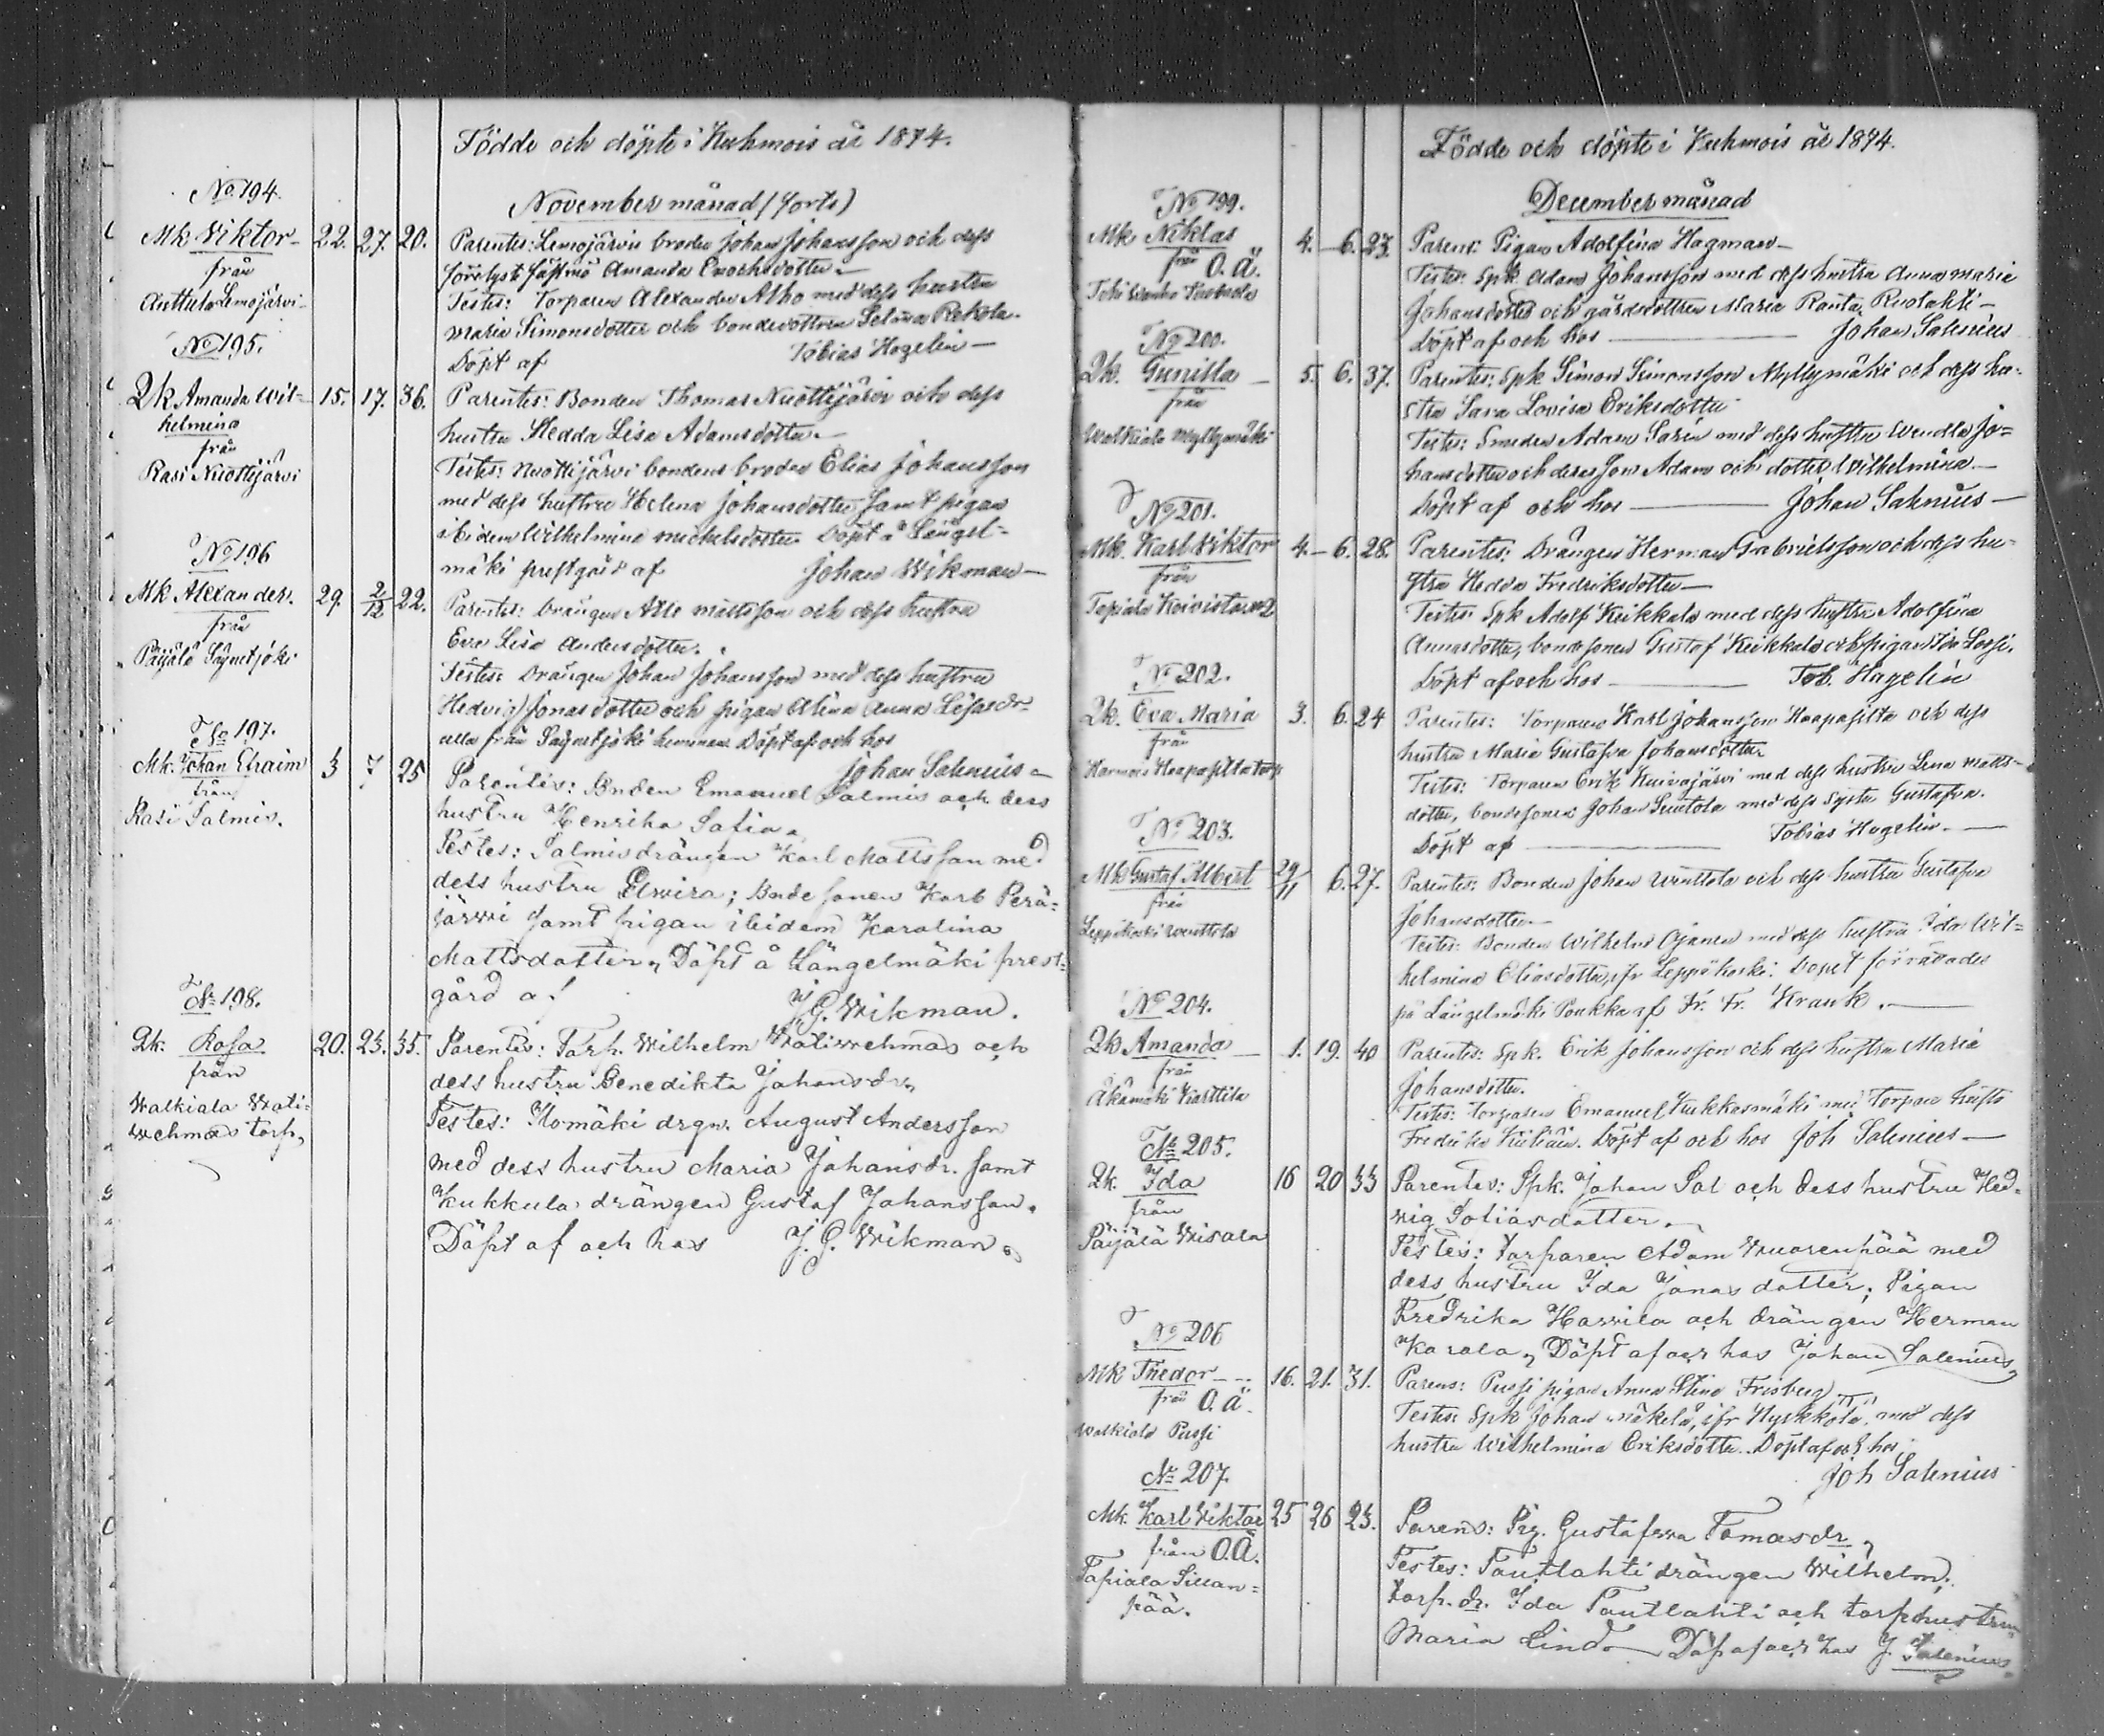 Födde och döpte i Kuhmois år 1874.
November månad (forts)
No 194.
Mk Viktor 22. 27. 20.
från
Anttula Lemojärvi
Parentes: Lemojärvi broder Johan Johansson och dess
förelyst fästmö Amanda Enochsdotter
Testes: Torparen Alexander Alho med dess hustru
Maria Simonsdotter och bondedottren Selma Rekola.
Döpt af Tobias Hagelin
No 195.
Qk Amanda Wil-
helmina 15. 17. 36.
från
Rasi Nuottijärvi
Parentes: Bonden Thomas Nuottijärvi och dess
hustru Hedda Lisa Adamsdotter
Testes: Nuottijärvi bondens broder Elias Johansson
med dess hustru Helena Johansdotter samt pigan
ibidem Wilhelmina Michelsdotter Döpt å Längel-
mäki prestgård af Johan Wikman
No 196
Mk Alexander. 29. 2/12 22.
från
Päijälä Säynetjoki
Parentes: Drängen Atle Mattsson och dess hustru
Eva Lisa Andersdotter.
Testes: Drängen Johan Johansson med dess hustru
Hedvig Jonasdotter och pigan Alina Anna Lisasdr
alla från Säynetjoki hemman Döpt af och hos
Johan Salenius
No 197.
Mk. Johan Efraim 3 7 25
från
Rasi Salmis.
Parentes: Bnden Emanuel Salmis och dess
hustru Henrika Sofia
Testes: Salmis drängen Karl Mattsson med
dess hustru Elwira; Bnde sonen Karl Perä-
järwi samt pigan ibidem Karolina
Mattsdotter, Döpt å Längelmäki prest-
gård af J. G. Wikman.
No 198.
Qk. Rosa 20. 23. 35.
från
Walkiala Wäli-
wehmas torp,
Parentes: Torp. Wilhelm Wäliwehmas och
dess hustru Benedikta Johansdr,
Testes: Ilomäki drgn. August Andersson
med dess hustru Maria Johansdr. samt
Kukkula drängen Gustaf Johansson.
Döpt af och hos J. G. Wikman
Födde och döpte i Kuhmois år 1874.
December månad
No 199.
Mk Niklas 4. 6. 23.
från O. Ä.
Parens: Pigan Adolfina Hagman
Testes: Spk. Adam Johansson med dess hustru Anna Maria
Johansdotter och gårdsdottren Maria Ranta Ruolahti
Döpt af och hos Johan Salenius
No 200.
Qk. Gunilla 5. 6. 37.
från
Walkiala Myllymäki
Parentes: Spk Simon Simonsson Myllymäki och dess hu-
stru Sara Lovisa Eriksdotter
Testes: Smeden Adam Sarin med dess hustru Wendla Jo-
hansdotter och deras son Adam och dotter Wilhelmina
Döpt af och hos Johan Salenius
No 201.
Mk. Karl Viktor 4. 6. 28.
från
Tapiala Koivisto
Parentes: Drängen Herman Gabrielsson och dess hu-
stru Hedda Fredriksdotter
Testes: Spk Adolf Keikkala med dess hustru Adolfina
Annasdotter, bondesonen Gustaf Keikkala och pigan
Döpt af och hos Tob. Hagelin
No 202.
Qk. Eva Maria 3. 6. 24
från
Harmois Haapasilta torp
Parentes: Torparen Karl Johansson Haapasilta och dess
hustru Maria Gustafva Johansdotter
Testes: Torparen Erik Kuivajärvi med dess hustru Lena Matts-
dotter, bondesonen Johan Seuttola med dess syster Gustafva.
Döpt af Tobias Hagelin.
No 203.
Mk Gustaf Albert 29/11 6. 27.
från
Leppäkoski Wenttola
Parentes: Bonden Johan Wenttola och dess hustru Gustafva
Johansdotter
Testes: Bonden Wilhelm Ojanen med dess hustru Ida Wil-
helmina Eliasdotter, ifr Leppäkoski. Dopet förrättades
på Längelmäki Poukka af Fr. Fr. Krank.
No 204.
Qk Amanda 1. 19. 40
från
Parentes: Spk. Erik Johansson och dess hustru Maria
Johansdotter.
Testes: Torparen Emanuel Kukkasmäki med Torpare hustr
Fredrika Döpt af och hos Joh Salenius
No 205.
Qk. Ida 16 20 33
från
Päijälä Wisala
Parentes: Spk. Johan Sal och dess hustru Hed-
wig Tobiasdotter.
Testes: Torparen Adam Wuorenpää med
dess hustru Ida Jonasdotter; Pigan
Fredrika Harrila och drängen Herman
Karala, Döpt af och hos Johan Salenius,
No 206
Mk Thedor 16. 21. 31.
från O. Ä.
Walkiala Pussi
Parens: Pussi pigan Anna Stina Frisberg
Testes: Spk Johan Mäkelä, ifr Nyrkkölä med dess
hustru Wilhelmina Eriksdotter. Döpt af och hos
Joh Salenius
No 207.
Mk. Karl Viktor 25 26 23.
från O.Ä.
Tapiala Sillan-
pää.
Parens: Pig. Gustafwa Tomasdr,
Testes: Tautlahti drängen Wilhelm,
torp. dr. Ida Tautlahti och torp hustrun
Maria Lind Döp af och hos J. Salenius